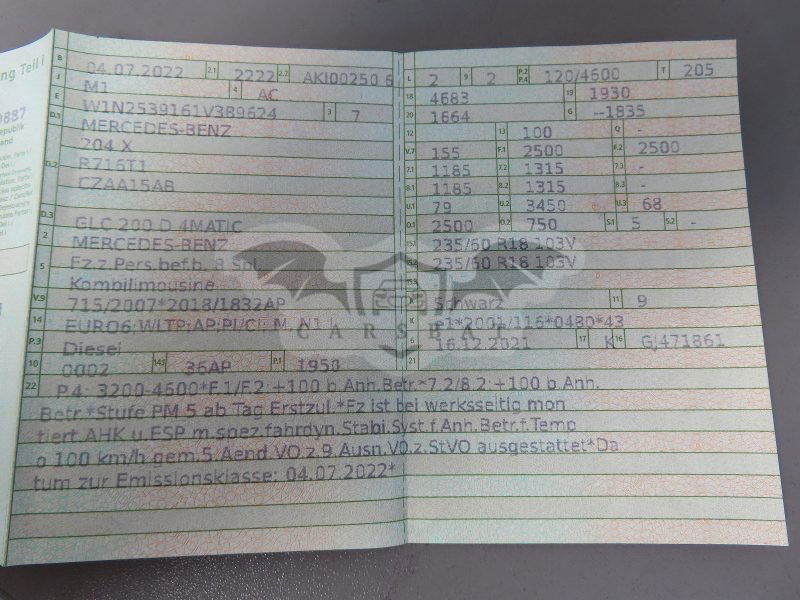 ng Teil I
9887
epublik
and
B 04.07.2022 2.1 2222 2.2 AKI00250 6
J M1 4 AC
E W1N2539161V389624 3 7
D.1 MERCEDES-BENZ
204 X
D.2 R716T1
CZAA15AB
D.3 GLC 200 D 4MATIC
2 MERCEDES-BENZ
5 Fz.z.Pers.bef.b. 8 Spl.
Kombilimousine
V.9 715/2007*2018/1832AP
14 EURO6;WLTP;AP;PI/CI; M, N1 I
P.3 Diesel
10 0002 14.1 36AP P.1 1950
L 2 9 2 P.2 P.4 120/4600 T 205
18 4683 19 1930
20 1664 G --1835
12 13 100 Q -
V.7 155 F.1 2500 F.2 2500
7.1 1185 7.2 1315 7.3 -
8.1 1185 8.2 1315 8.3 -
U.1 79 U.2 3450 U.3 68
O.1 2500 O.2 750 S.1 5 S.2 -
15.1 235/60 R18 103V
15.2 235/60 R18 103V
15.3
R Schwarz 11 9
K e1*2001/116*0480*43
6 16.12.2021 17 K 16 GJ471861
21
CARSPAT
22 P.4: 3200-4600*F.1/F.2: +100 b.Anh.Betr.*7.2/8.2: +100 b.Anh.
Betr.*Stufe PM 5 ab Tag Erstzul.*Fz ist bei werksseitig mon
tiert.AHK u.ESP m.spez.fahrdyn.Stabi.Syst.f.Anh.Betr.f.Temp
o 100 km/h gem.5.Aend.VO.z.9.Ausn.VO.z.StVO ausgestattet*Da
tum zur Emissionsklasse: 04.07.2022*